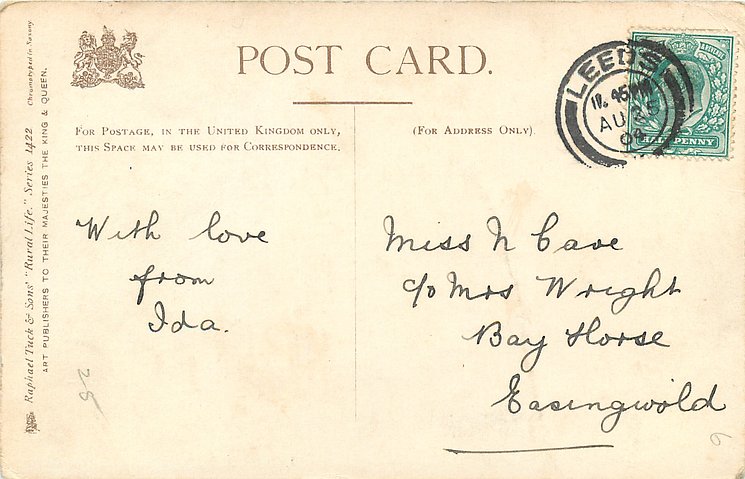 POST CARD.
FOR POSTAGE, IN THE UNITED KINGDOM ONLY,
THIS SPACE MAY BE USED FOR CORRESPONDENCE.
(FOR ADDRESS ONLY)
LEEDS
11.45PM
AU
HALFPENNY
With love
from
Ida.
Miss N Cave
c/o Mrs Wright
Bay Horse
Easingwold
Raphael Tuck & Sons' "Rural Life." Series 1422
Chromotyped in Saxony
ART PUBLISHERS TO THEIR MAJESTIES THE KING & QUEEN.